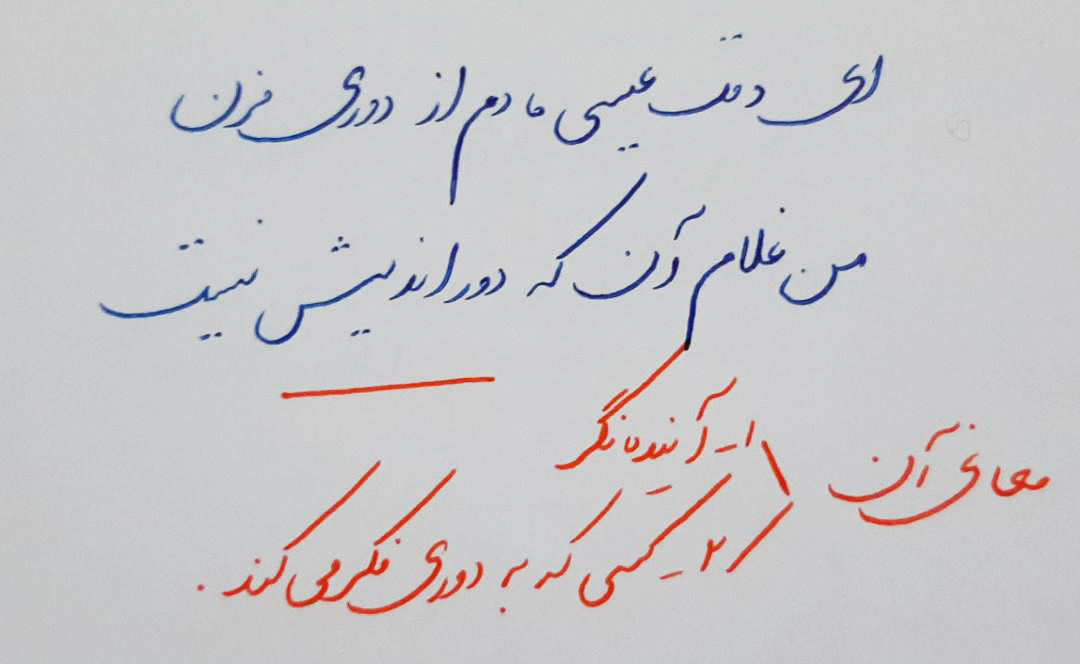 ای وقت عیسی ما دم از دوری مزن
من غلام آن که دوراندیش نیست
معانی آن
۱ـ آینده‌نگر
۲ـ کسی که به دوری فکر می‌کند.